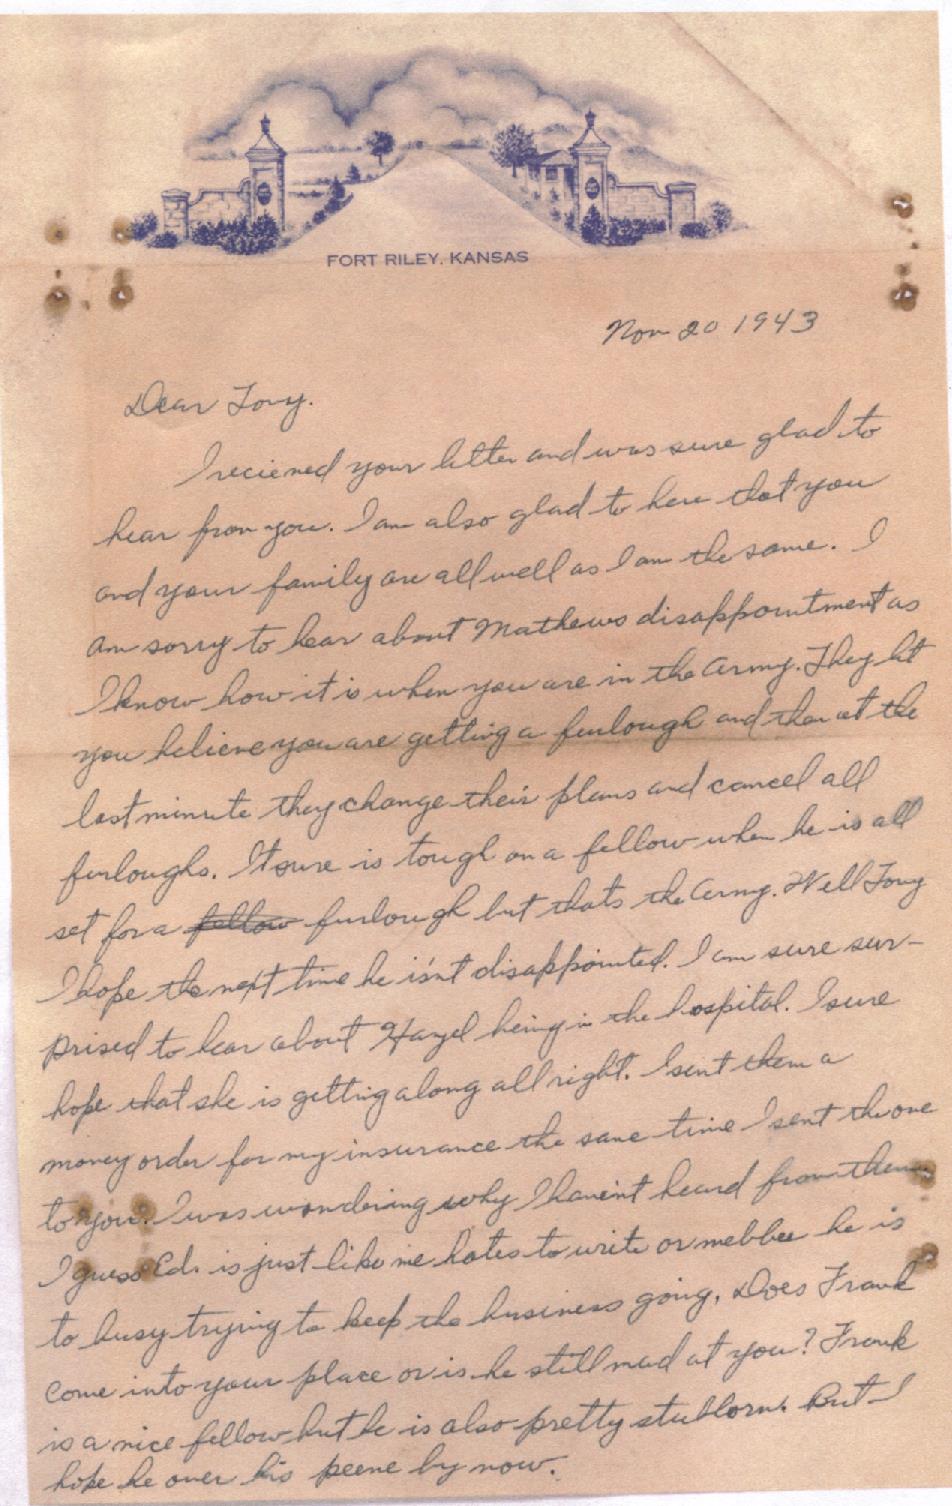 FORT RILEY, KANSAS
Nov 20 1943
Dear Tony.
I recieved your letter and was sure glad to
hear from you. I am also glad to here that you
and your family are all well as I am the same. I
am sorry to hear about Mathews disappointment as
I know how it is when you are in the army. They let
you believe you are getting a furlough and then at the
last minute they change their plans and cancel all
furloughs. It sure is tough on a fellow when he is all
set for a fellow furlough but thats the army. Well Tony
I hope the next time he isn't disappointed. I am sure sur-
prised to hear about Hazel being in the hospital. I sure
hope that she is getting along all right. I sent them a
money order for my insurance the same time I sent the one
to you. I was wondering why I haven't heard from them
I guess Ed. is just like me hates to write or mebbee he is
to busy trying to keep the business going. Does Frank
come into your place or is he still mad at you? Frank
is a nice fellow but he is also pretty stubborn. But I
hope he over his peeve by now.